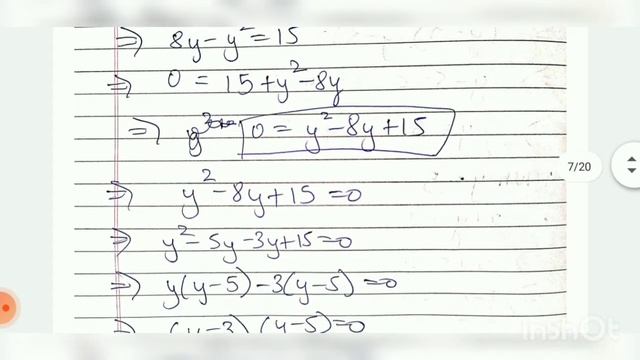 ⇒ 8y - y² = 15
⇒ 0 = 15 + y² - 8y
⇒ 0 = y² - 8y + 15
7/20
⇒ y² - 8y + 15 = 0
⇒ y² - 5y - 3y + 15 = 0
⇒ y(y-5) - 3(y-5) = 0
⇒ (y-3) (y-5) = 0
InShot